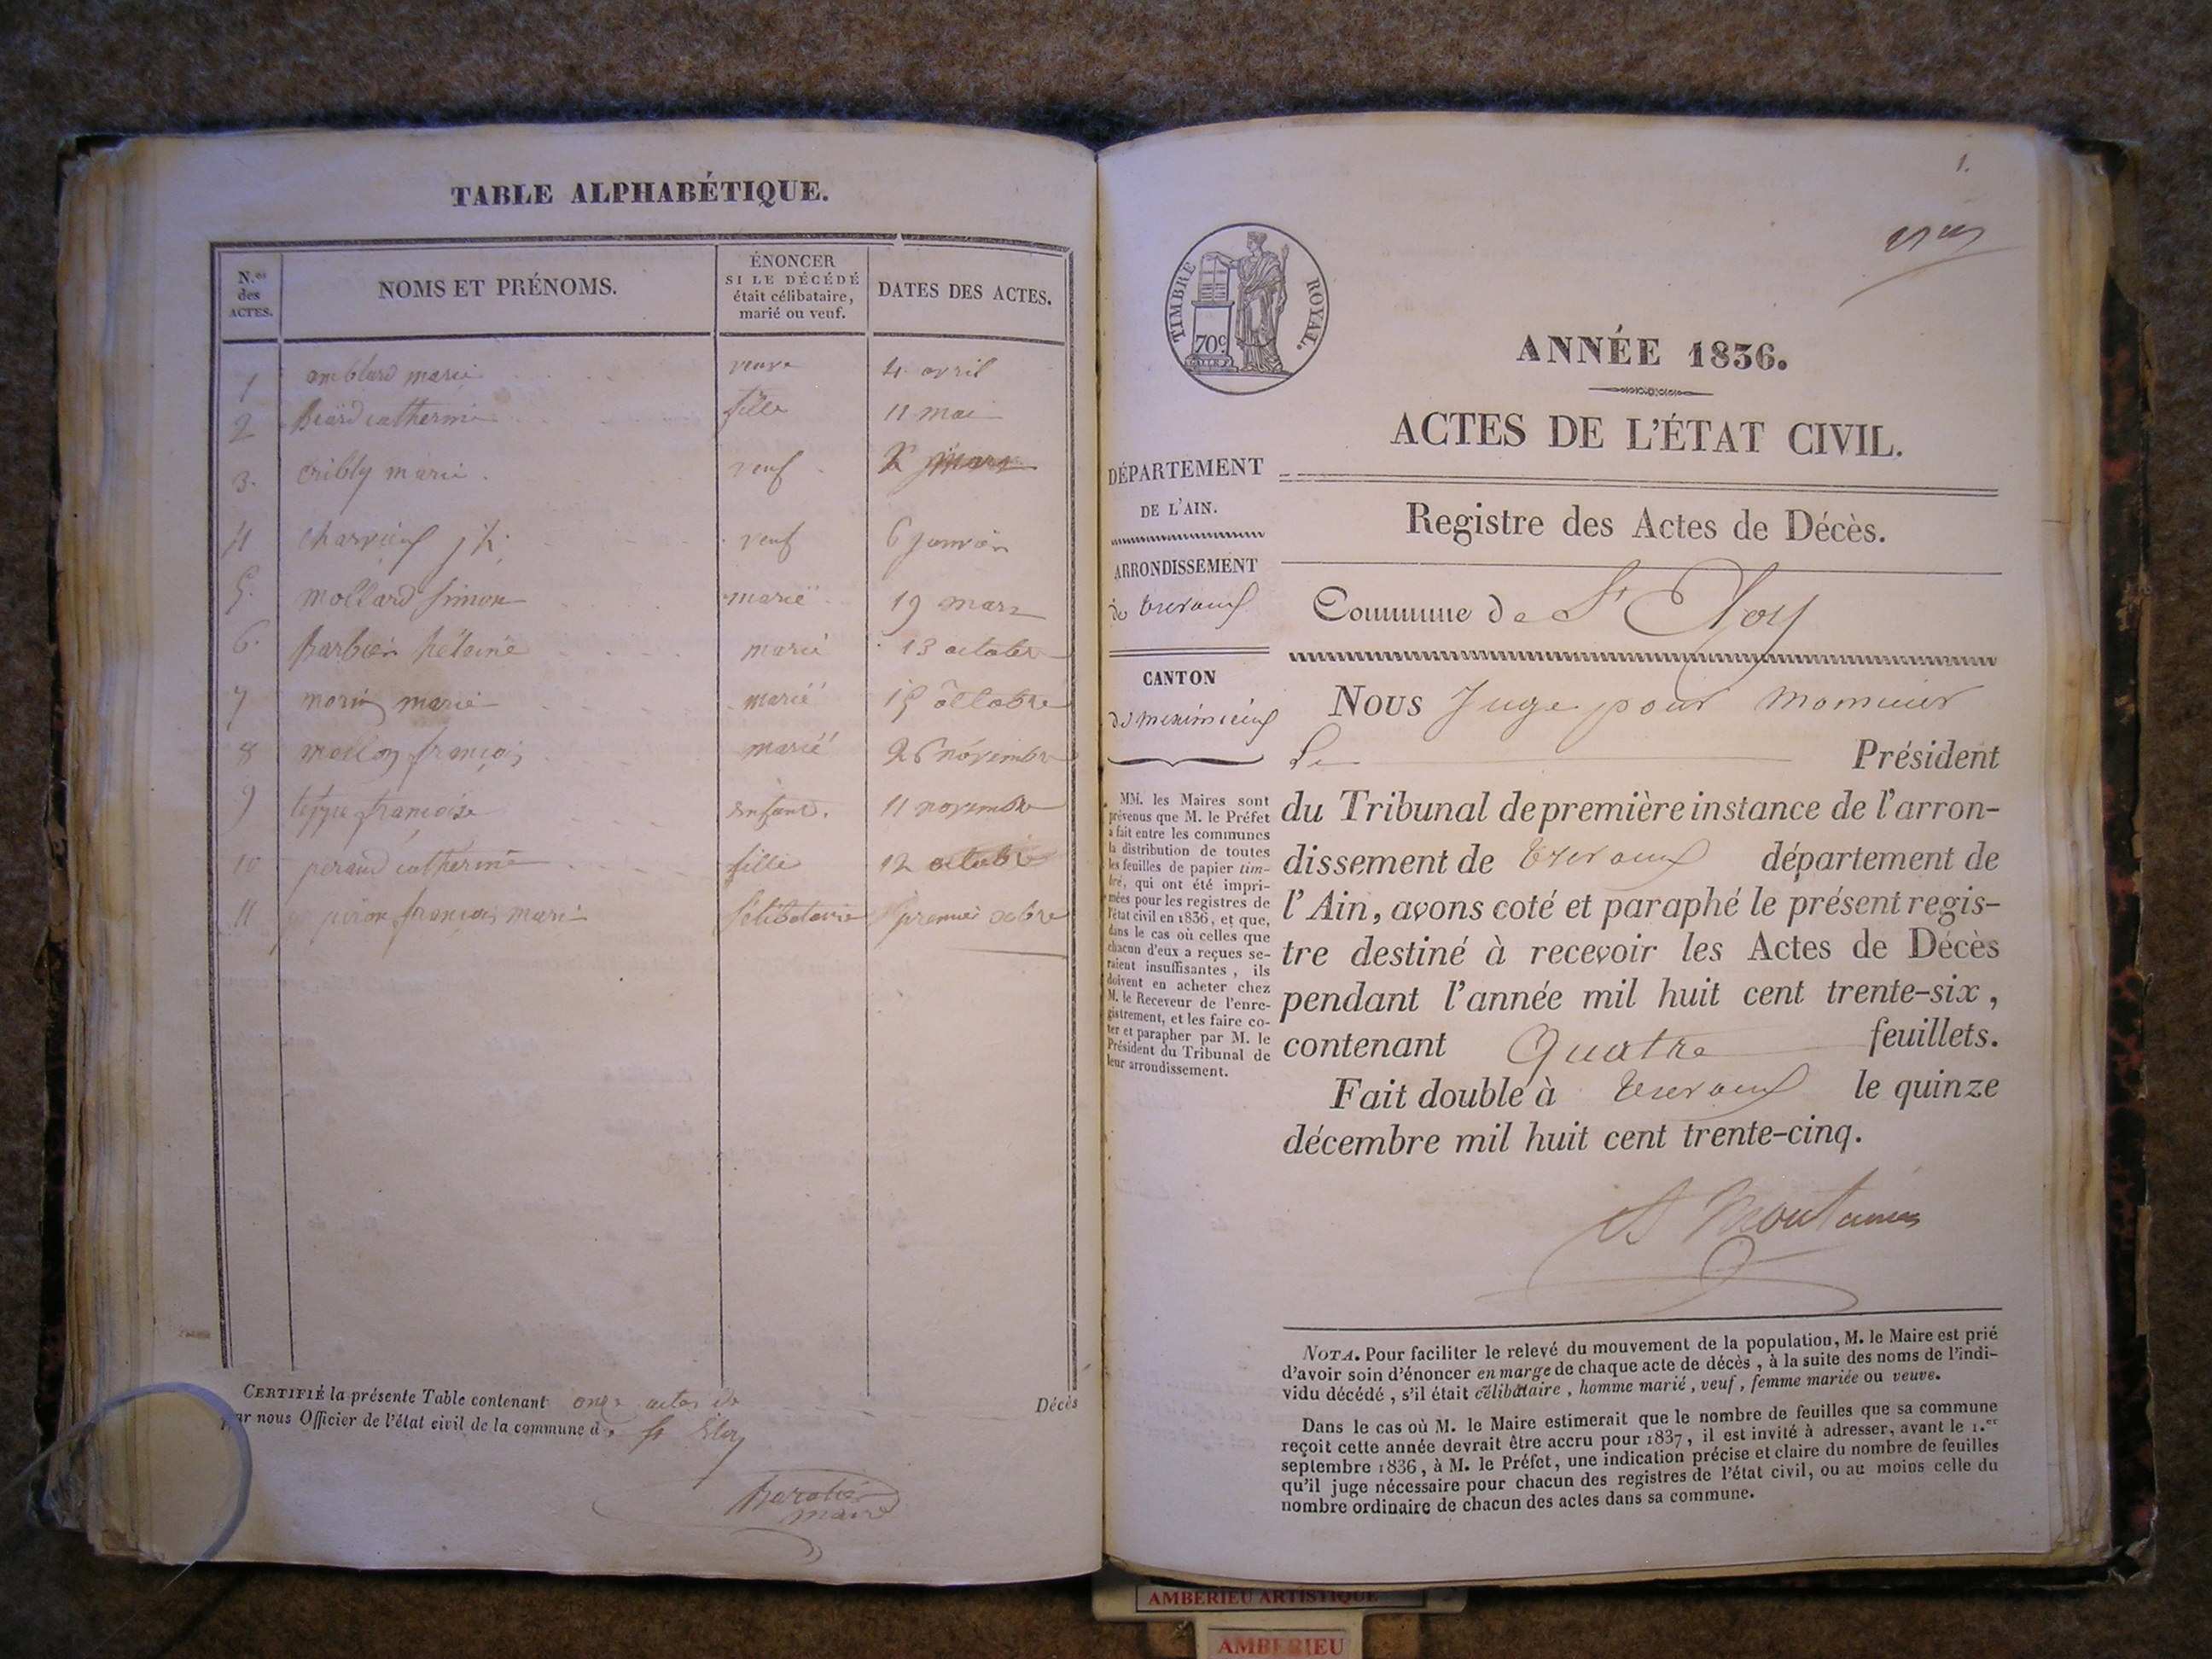 TABLE ALPHABÉTIQUE.
N.os des ACTES.
NOMS ET PRÉNOMS.
ÉNONCER
SI LE DÉCÉDÉ
était célibataire,
marié ou veuf.
DATES DES ACTES.
1 amblard marie veuve 4 avril
2 catherine fille 11 mai
3. marie veuf
4 veuf 6 janvier
5. mollard simon marié 19 mars
6. barbier marié 13 octobre
7 morin marie marié 15 octobre
8 françois marié 26 novembre
9 françoise enfant. 11 novembre
10 peraud catherine fille 12 octobre
11 piron françois marie premier
CERTIFIÉ la présente Table contenant onze actes de Décès
par nous Officier de l'état civil de la commune d St Eloy
maire
1.
TIMBRE ROYAL.
70c
ANNÉE 1836.
ACTES DE L'ÉTAT CIVIL.
Registre des Actes de Décès.
Commune de St Eloy
DÉPARTEMENT
DE L'AIN.
ARRONDISSEMENT
de Trevoux
CANTON
de meximieux
MM. les Maires sont
prévenus que M. le Préfet
a fait entre les communes
la distribution de toutes
les feuilles de papier tim-
bré, qui ont été impri-
mées pour les registres de
l'état civil en 1836, et que,
dans le cas où celles que
chacun d'eux a reçues se-
raient insuffisantes, ils
doivent en acheter chez
M. le Receveur de l'enre-
gistrement, et les faire co-
ter et parapher par M. le
Président du Tribunal de
leur arrondissement.
Nous Juge pour Monsieur
Le Président
du Tribunal de première instance de l'arron-
dissement de Trevoux département de
l'Ain, avons coté et paraphé le présent regis-
tre destiné à recevoir les Actes de Décès
pendant l'année mil huit cent trente-six,
contenant Quatre feuillets.
Fait double à Trevoux le quinze
décembre mil huit cent trente-cinq.
NOTA. Pour faciliter le relevé du mouvement de la population, M. le Maire est prié
d'avoir soin d'énoncer en marge de chaque acte de décès, à la suite des noms de l'indi-
vidu décédé, s'il était célibataire, homme marié, veuf, femme mariée ou veuve.
Dans le cas où M. le Maire estimerait que le nombre de feuilles que sa commune
reçoit cette année devrait être accru pour 1837, il est invité à adresser, avant le 1.er
septembre 1836, à M. le Préfet, une indication précise et claire du nombre de feuilles
qu'il juge nécessaire pour chacun des registres de l'état civil, ou au moins celle du
nombre ordinaire de chacun des actes dans sa commune.
AMBERIEU ARTISTIQUE
AMBERIEU